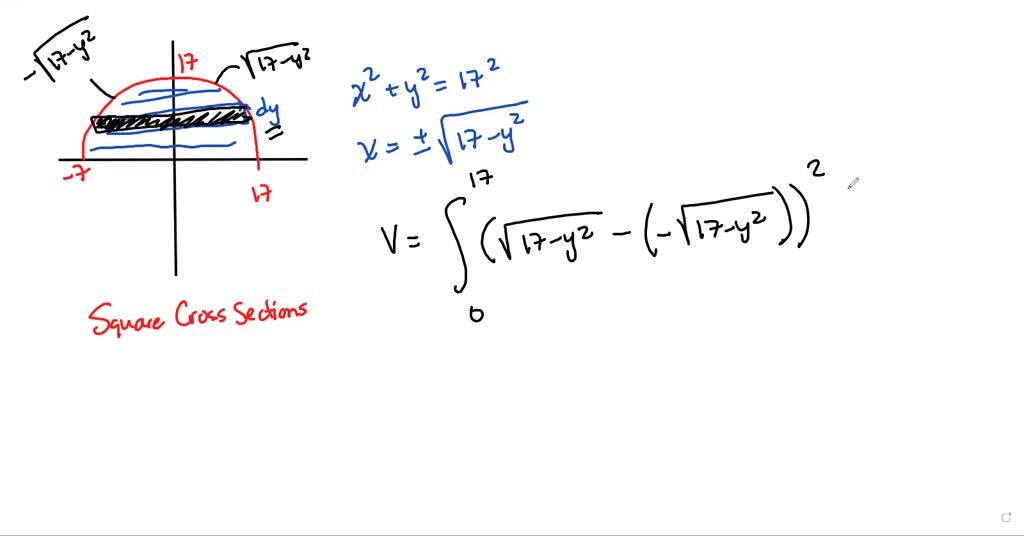 -√(17-y²)
17
√(17-y²)
dy
-7
17
Square Cross Sections
x² + y² = 17²
x = ± √(17-y²)
V = ∫₀¹⁷ (√(17-y²) - (-√(17-y²)))²